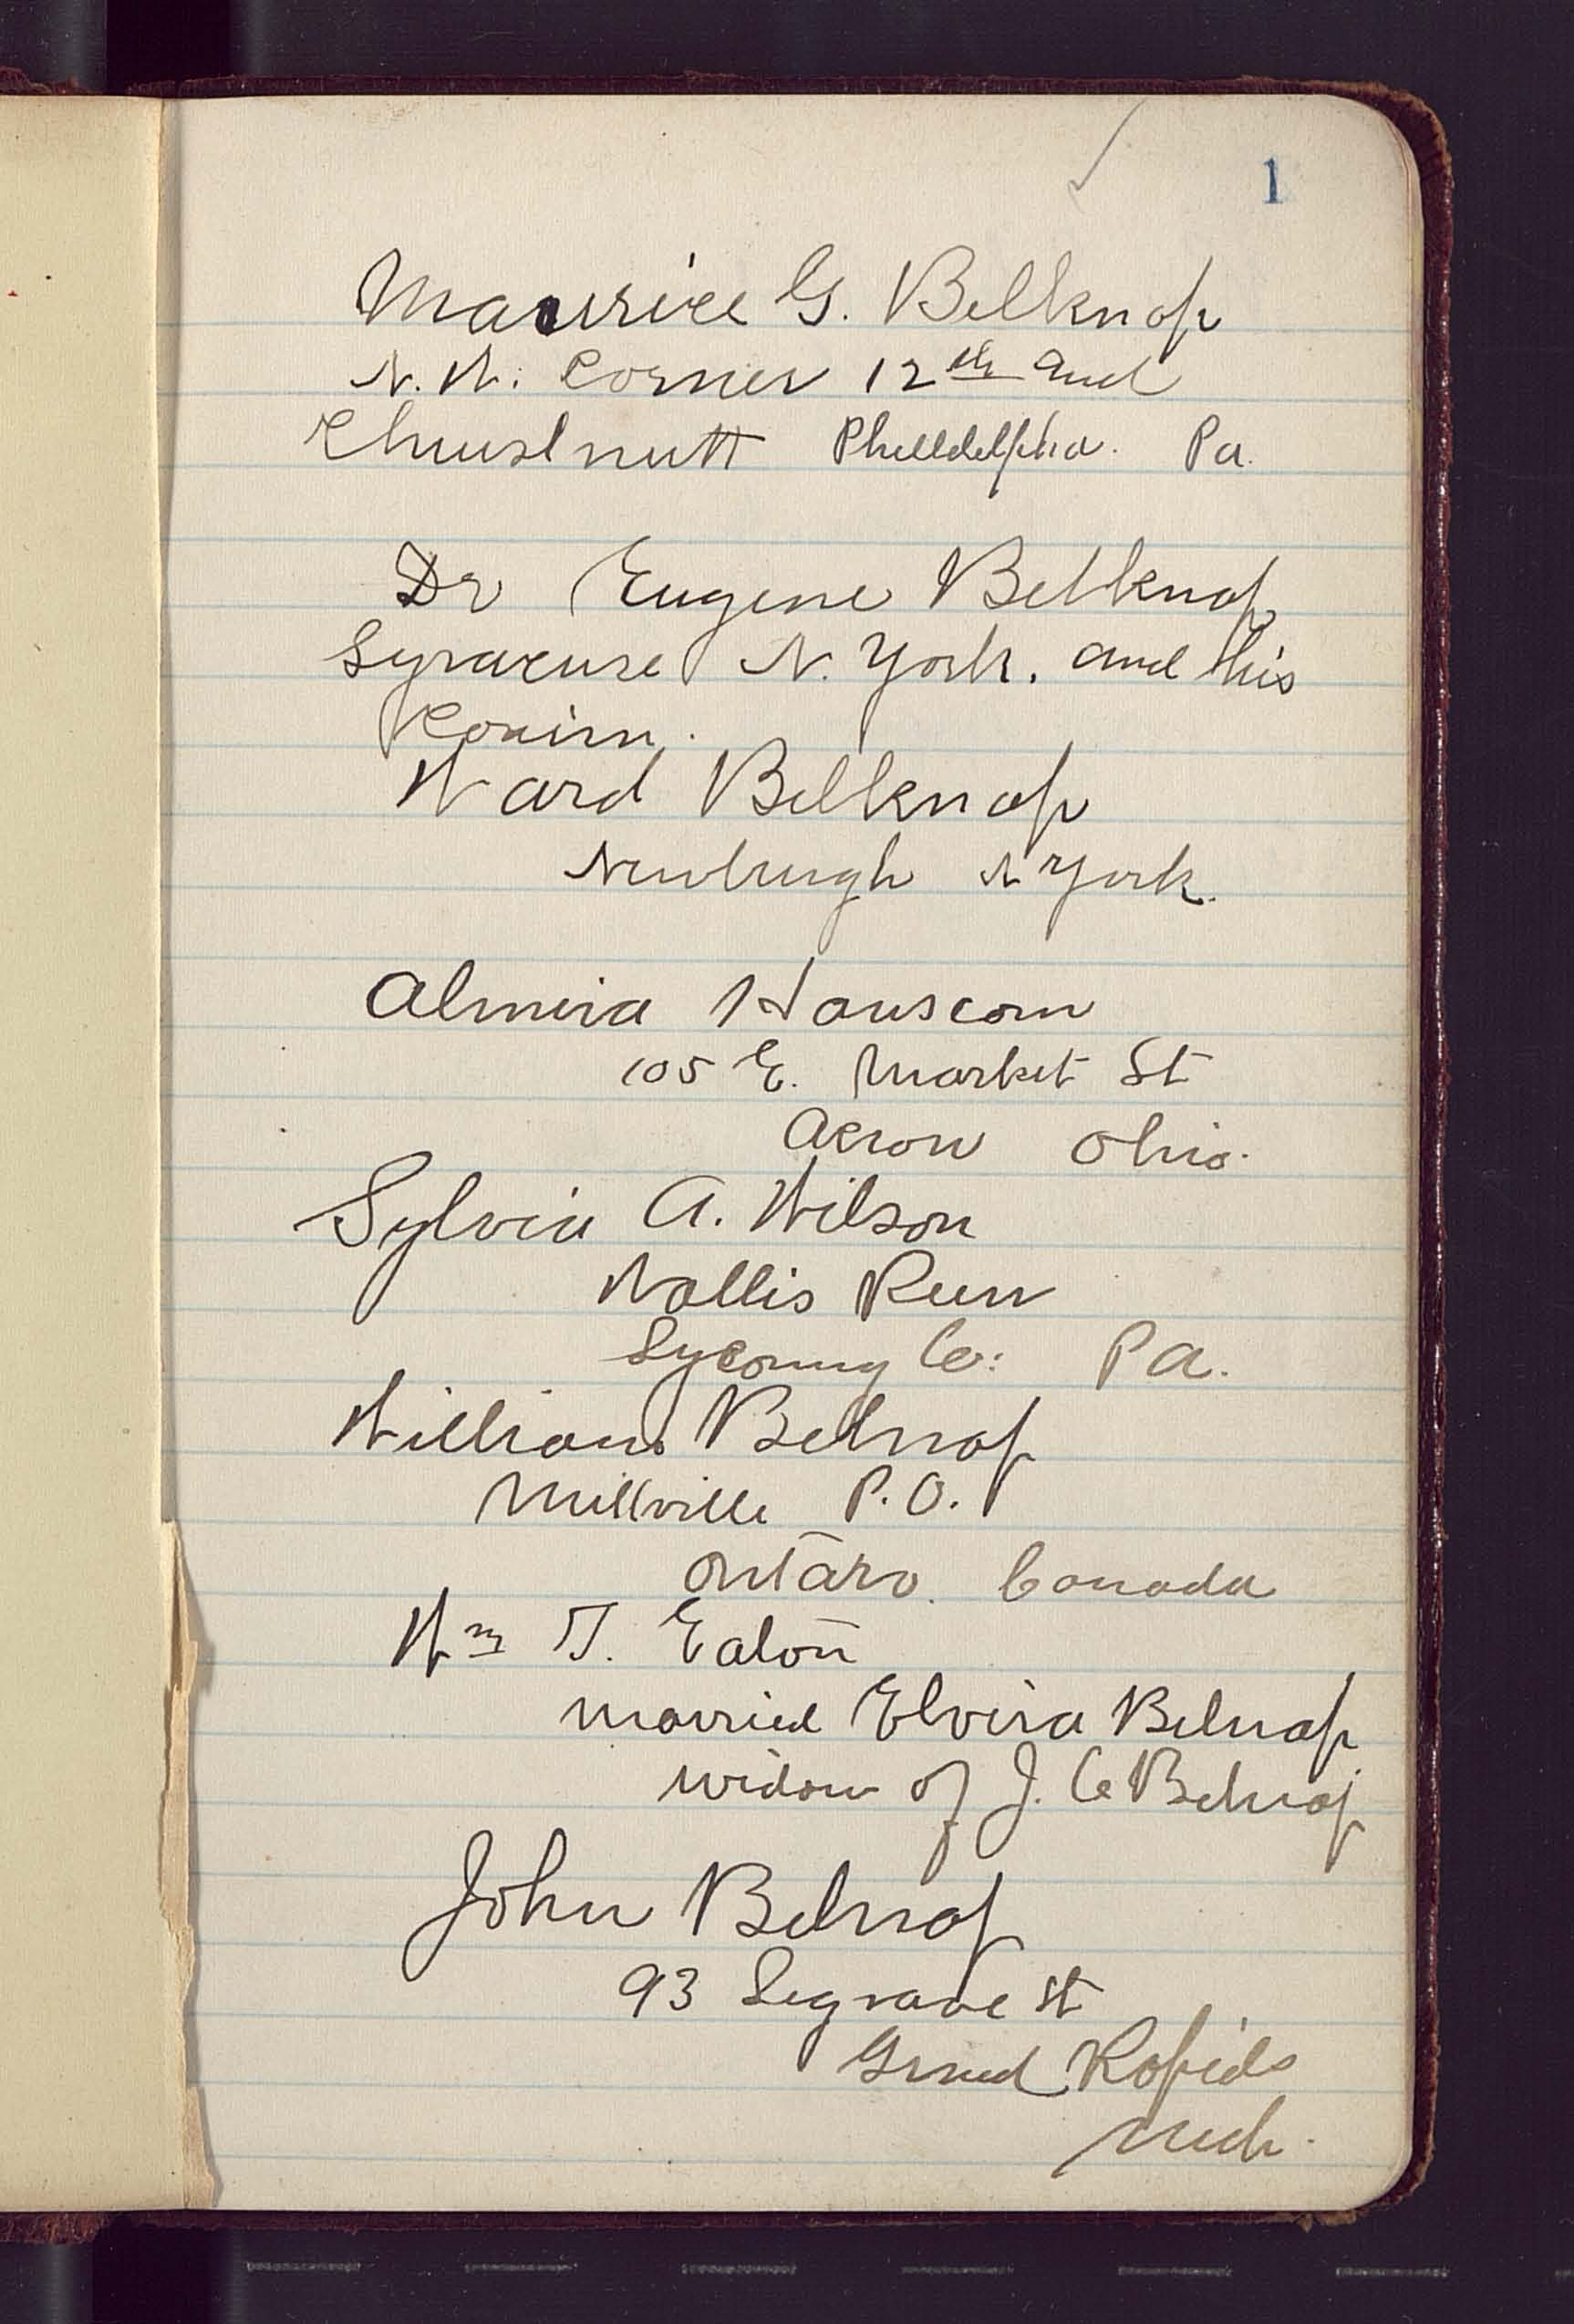 1
Maurice G. Belknap
N. W. Corner 12th and
Chusstnutt Philldelphia. Pa.
Dr Eugene Belknap
Syracuse N. York. and his
Cousin.
Ward Belknap
Newburgh N York.
Almira Hanscom
105 E. Market St
Acron Ohio.
Sylvia A. Wilson
Wallis Run
Lycoming Co: Pa.
William Belnap
Millville P.O.
Ontaro. Canada
Wm T. Eaton
married Elvira Belnap
widow of J. C Belnap
John Belnap
93 Segrave St
Grand Rapids
Mich.